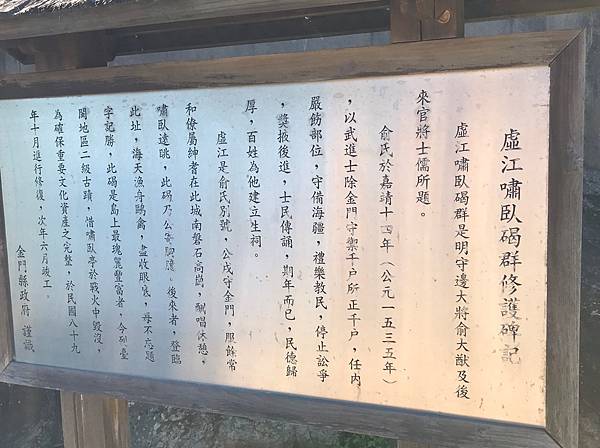 虛江嘯臥碣群修護碑記
虛江嘯臥碣群是明守邊大將俞大猷及後
來官將士儒所題。
俞氏於嘉靖十四年（公元一五三五年）
，以武進士除金門守禦千户所正千户，任內
嚴飭部位，守備海疆，禮樂教民，停止訟爭
，獎掖後進，士民傳誦，期年而已，民德歸
厚，百姓為他建立生祠。
虛江是俞氏別號，公戍守金門，服餘常
和僚屬紳耆在此城南磐石高處，酬唱休憩，
嘯臥遠眺，此碣乃公寄胸臆。後來者，登臨
此址，海天漁舟鷗鳥，盡收眼底，毋不忘題
字記勝，此碣是島上最瑰麗豐富者，今列臺
閩地區二級古蹟，惜嘯臥亭於戰火中毀沒，
為確保重要文化資產之完整，於民國八十九
年十月進行修復，次年六月竣工。
金門縣政府 謹識